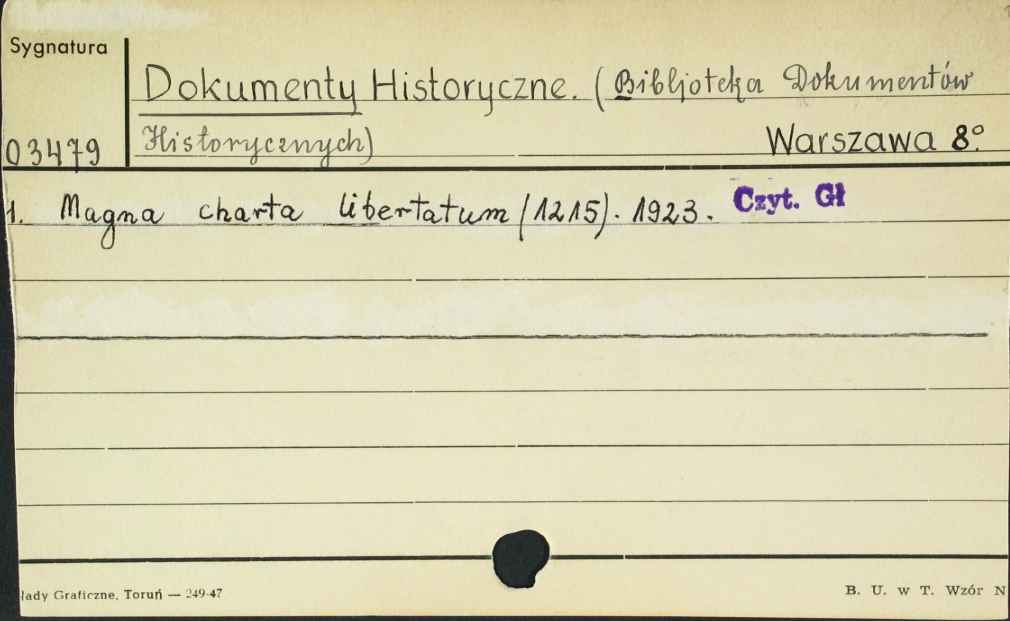 Sygnatura
Dokumenty Historyczne. (Bibljoteka Dokumentów
03479 Historycznych) Warszawa 8º
1. Magna charta libertatum (1215). 1923. Czyt. Gł
łady Graficzne, Toruń — 249-47 B. U. w T. Wzór N